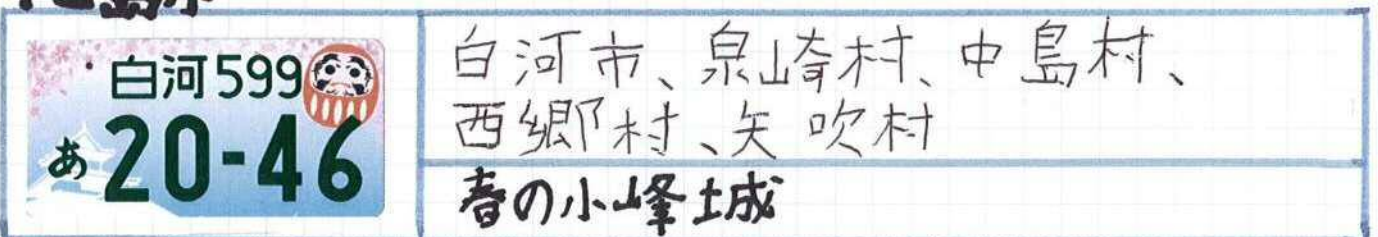 白河599
あ20-46
白河市、泉崎村、中島村、
西郷村、矢吹村
春の小峰城